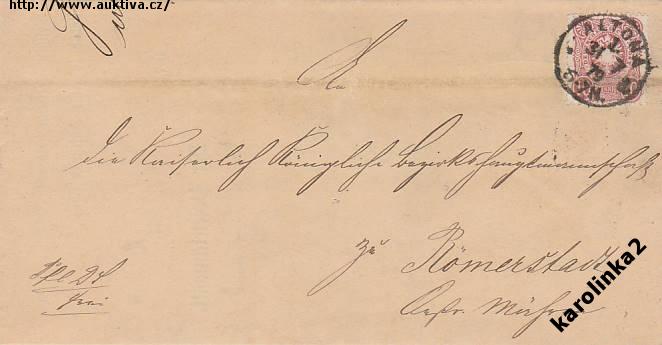 http://www.auktiva.cz/
ALTONA
An
die Kaiserlich Königliche Bezirkshauptmannschaft
zu
Römerstadt
Oestr. Mähren
frei
karolinka2